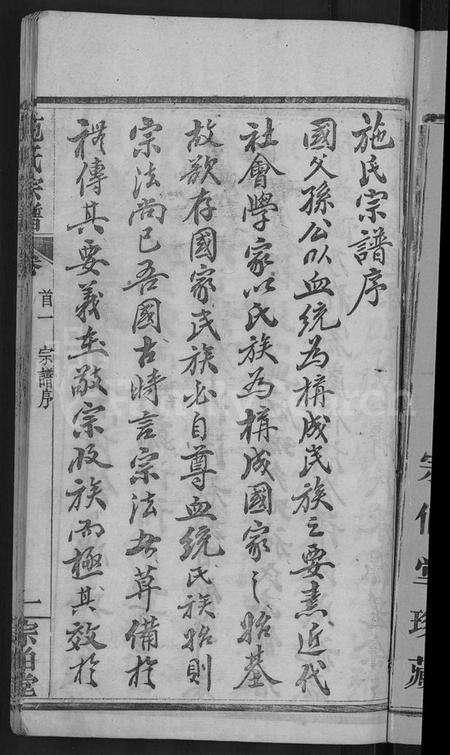 施氏宗譜序
國父孫公以血統為構成民族之要素近代
社會學家以氏族為構成國家之始基
故欲存國家民族必自尊血統氏族始則
宗法尚已吾國古時言宗法者莫備於
禮傳其要義在敬宗收族而極其效於
施氏宗譜
卷
首一
宗譜序
一